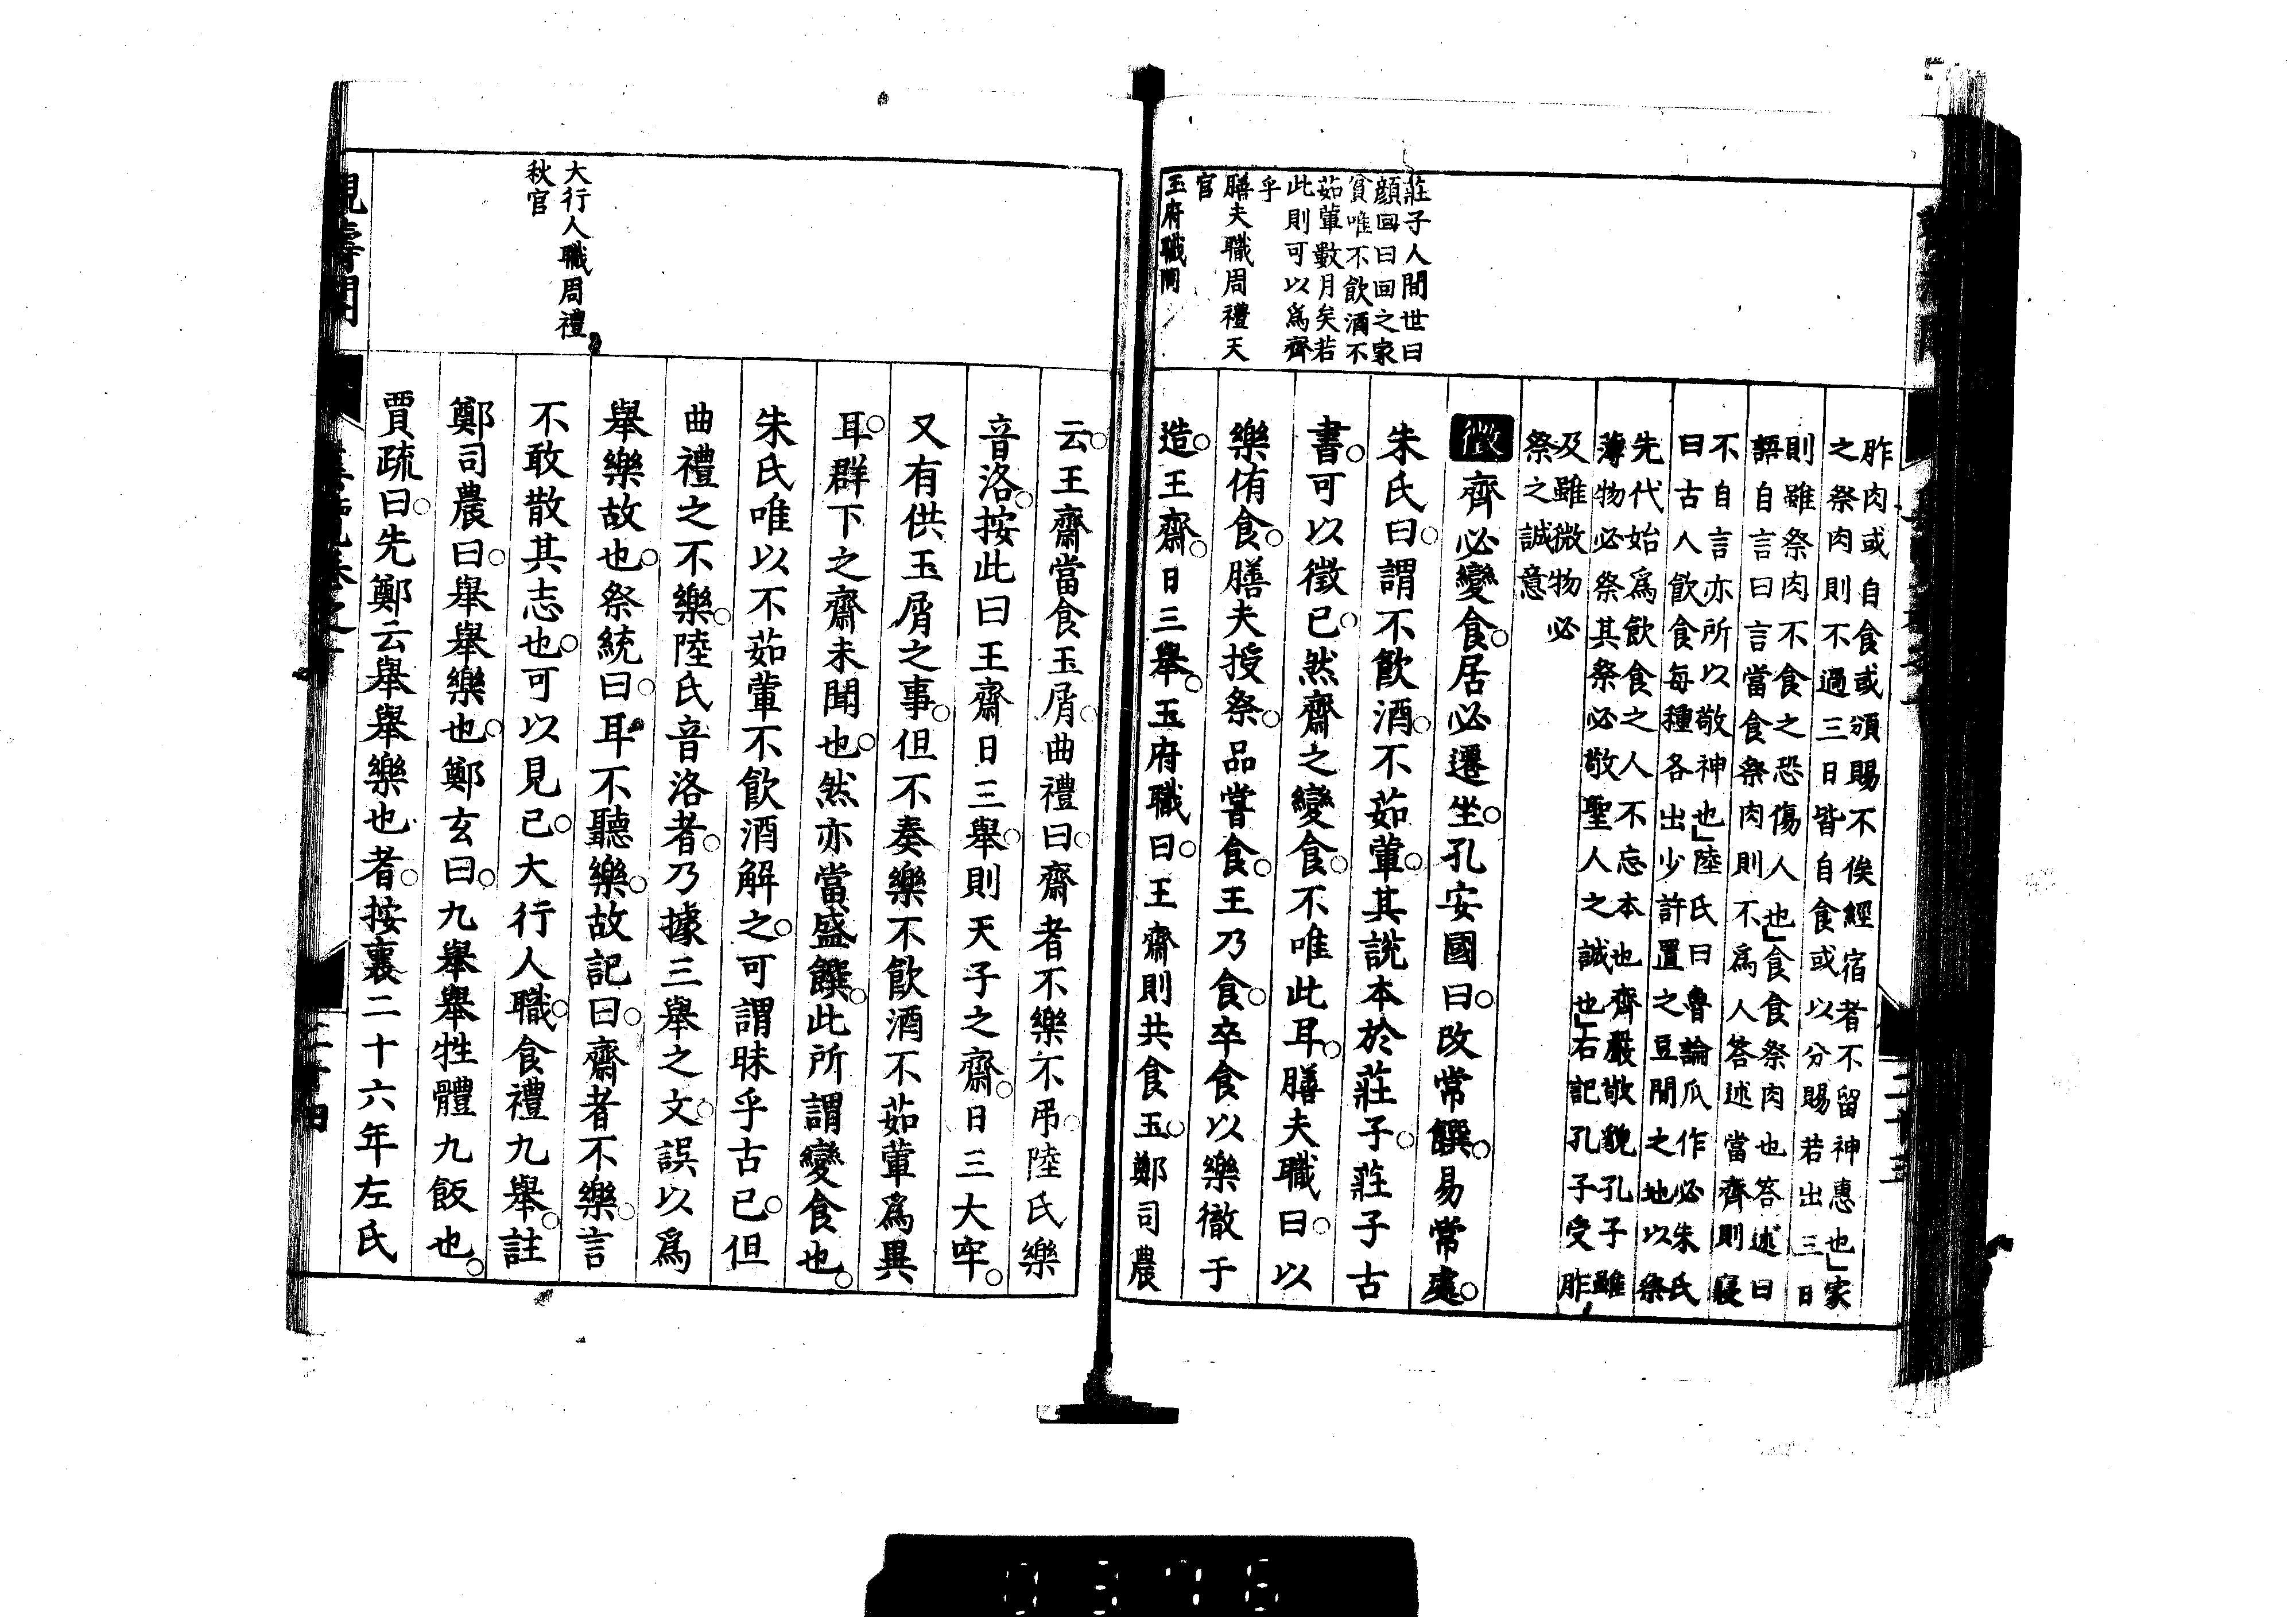 莊子人間世曰
顔回曰回之家
貧唯不飲酒不
茹葷數月矣若
此則可以爲齊
乎
膳夫職周禮天
官
玉府職同
胙肉或自食或頒賜不俟經宿者不留神惠也」家
之祭肉則不過三日皆自食或以分賜若出三日
則雖祭肉不食之恐傷人也」食食祭肉也答述曰
語自言曰言當食祭肉則不爲人答述當齊則寢
不自言亦所以敬神也」陸氏曰魯論瓜作必朱氏
曰古人飲食每種各出少許置之豆間之地以祭
先代始爲飲食之人不忘本也齊嚴敬貌孔子雖
薄物必祭其祭必敬聖人之誠也」右記孔子受胙
及雖微物必
祭之誠意
徵齊必變食。居必遷坐。孔安國曰。改常饌。易常處。
朱氏曰。謂不飮酒。不茹葷。其說本於莊子。莊子古
書。可以徵已。然齋之變食。不唯此耳。膳夫職曰。以
樂侑食。膳夫授祭。品嘗食。王乃食。卒食以樂徹于
造。王齋。日三舉。玉府職曰。王齋則共食玉。鄭司農
云。王齋當食玉屑。曲禮曰。齋者不樂不弔。陸氏樂
音洛。按此曰王齋日三舉。則天子之齋。日三大牢。
又有供玉屑之事。但不奏樂不飮酒不茹葷爲異
耳。群下之齋未聞也。然亦當盛饌。此所謂變食也。
朱氏唯以不茹葷不飮酒解之。可謂昧乎古已。但
曲禮之不樂。陸氏音洛者。乃據三舉之文。誤以爲
舉樂故也。祭統曰。耳不聽樂。故記曰。齋者不樂。言
不敢散其志也。可以見已。大行人職。食禮九舉。註
鄭司農曰。舉舉樂也。鄭玄曰。九舉舉牲體九飯也。
賈疏曰。先鄭云舉舉樂也者。按襄二十六年左氏
大行人職周禮
秋官